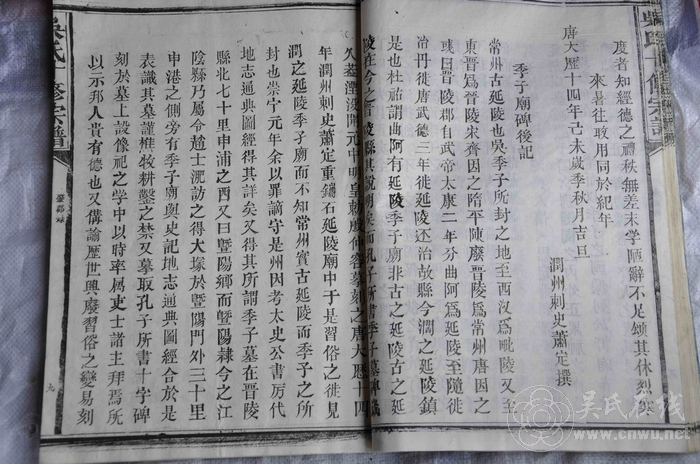 度者知經德之禮秩無差末學陋辭不足頌其休烈寒
來暑往敢用同於紀年
唐大歷十四年己未歲季秋月吉旦
潤州刺史蕭定撰
季子廟碑後記
常州古延陵也吳季子所封之地至西汉爲毗陵又至
東晉爲晉陵宋齊因之隋平陳廢晉陵爲常州唐因之
或曰晉陵郡自武帝太康二年分曲阿爲延陵至隨徙
治丹徒唐武德三年徙延陵还治故縣今潤之延陵鎮
是也杜祐謂曲阿有延陵季子廟非古之延陵古之延
陵在今之晉陵縣其說明矣而孔子所書季子墓碑
久湮没開元中明皇勅殷仲容摹刻之唐大歷十四
年潤州刺史蕭定重鐫石延陵廟中于是習俗之徒見
潤之延陵季子廟而不知常州實古延陵而季子之所
封也崇宁元年余以罪謫守是州因考太史公書历代
地志通典圖經得其詳矣又得其所謂季子墓在晉陵
縣北七十里申浦之西又曰暨陽鄉而暨陽隸今之江
陰縣乃屬令趙士淝訪之得大塚於暨陽門外三十里
申港之側旁有季子廟與史記地志通典圖經合於是
表識其墓謹樵牧耕鑿之禁又摹取孔子所書十字碑
刻於墓上設像祀之学中以時率属吏士諸主拜焉所
以示邦人貴有德也又備論歷世興廢習俗之變易刻
吳氏十修宗譜
九
吴氏在线
www.cnwu.net